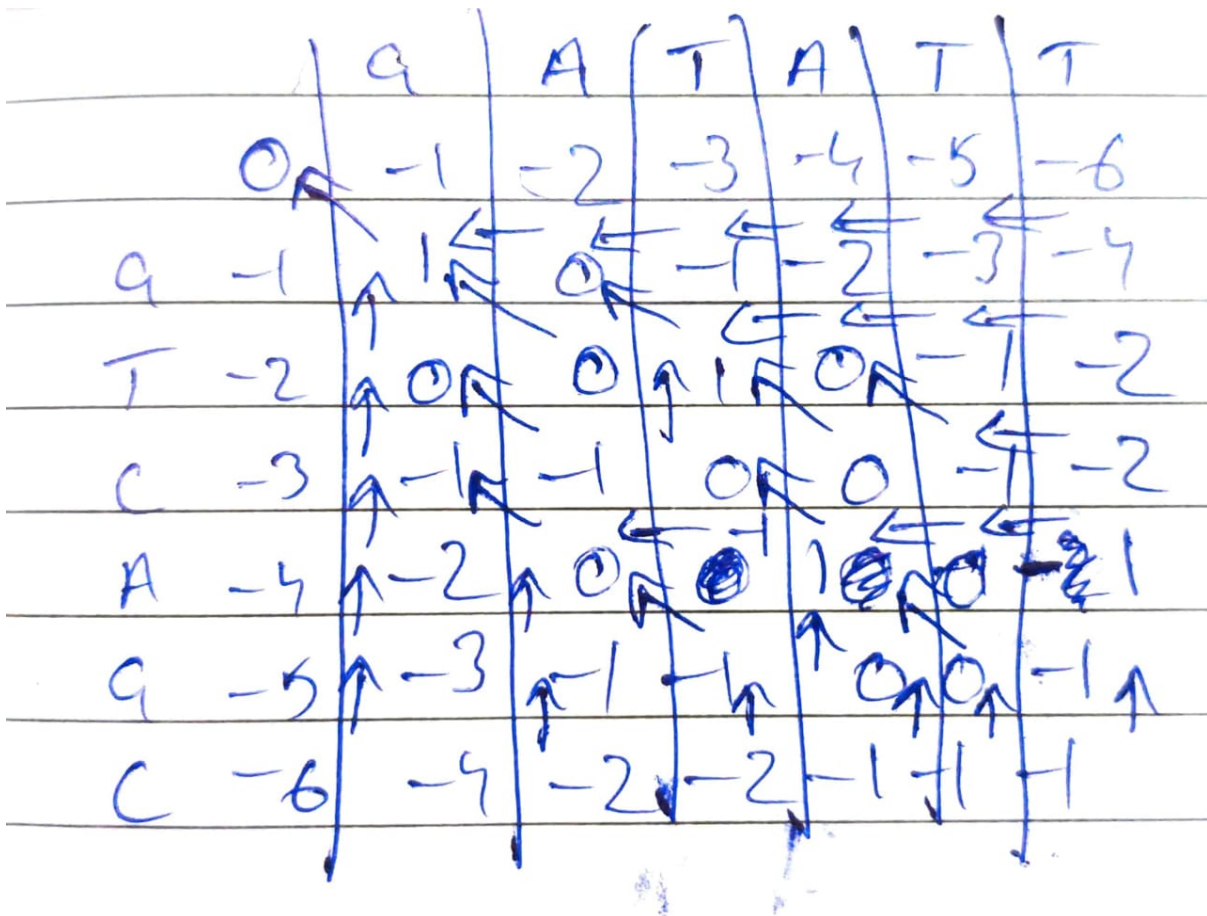 G A T A T T
0 -1 -2 -3 -4 -5 -6
G -1 1 0 -1 -2 -3 -4
T -2 0 0 1 0 -1 -2
C -3 -1 -1 0 0 -1 -2
A -4 -2 0 -1 1 0 -1
G -5 -3 -1 -1 0 0 -1
C -6 -4 -2 -2 -1 -1 -1